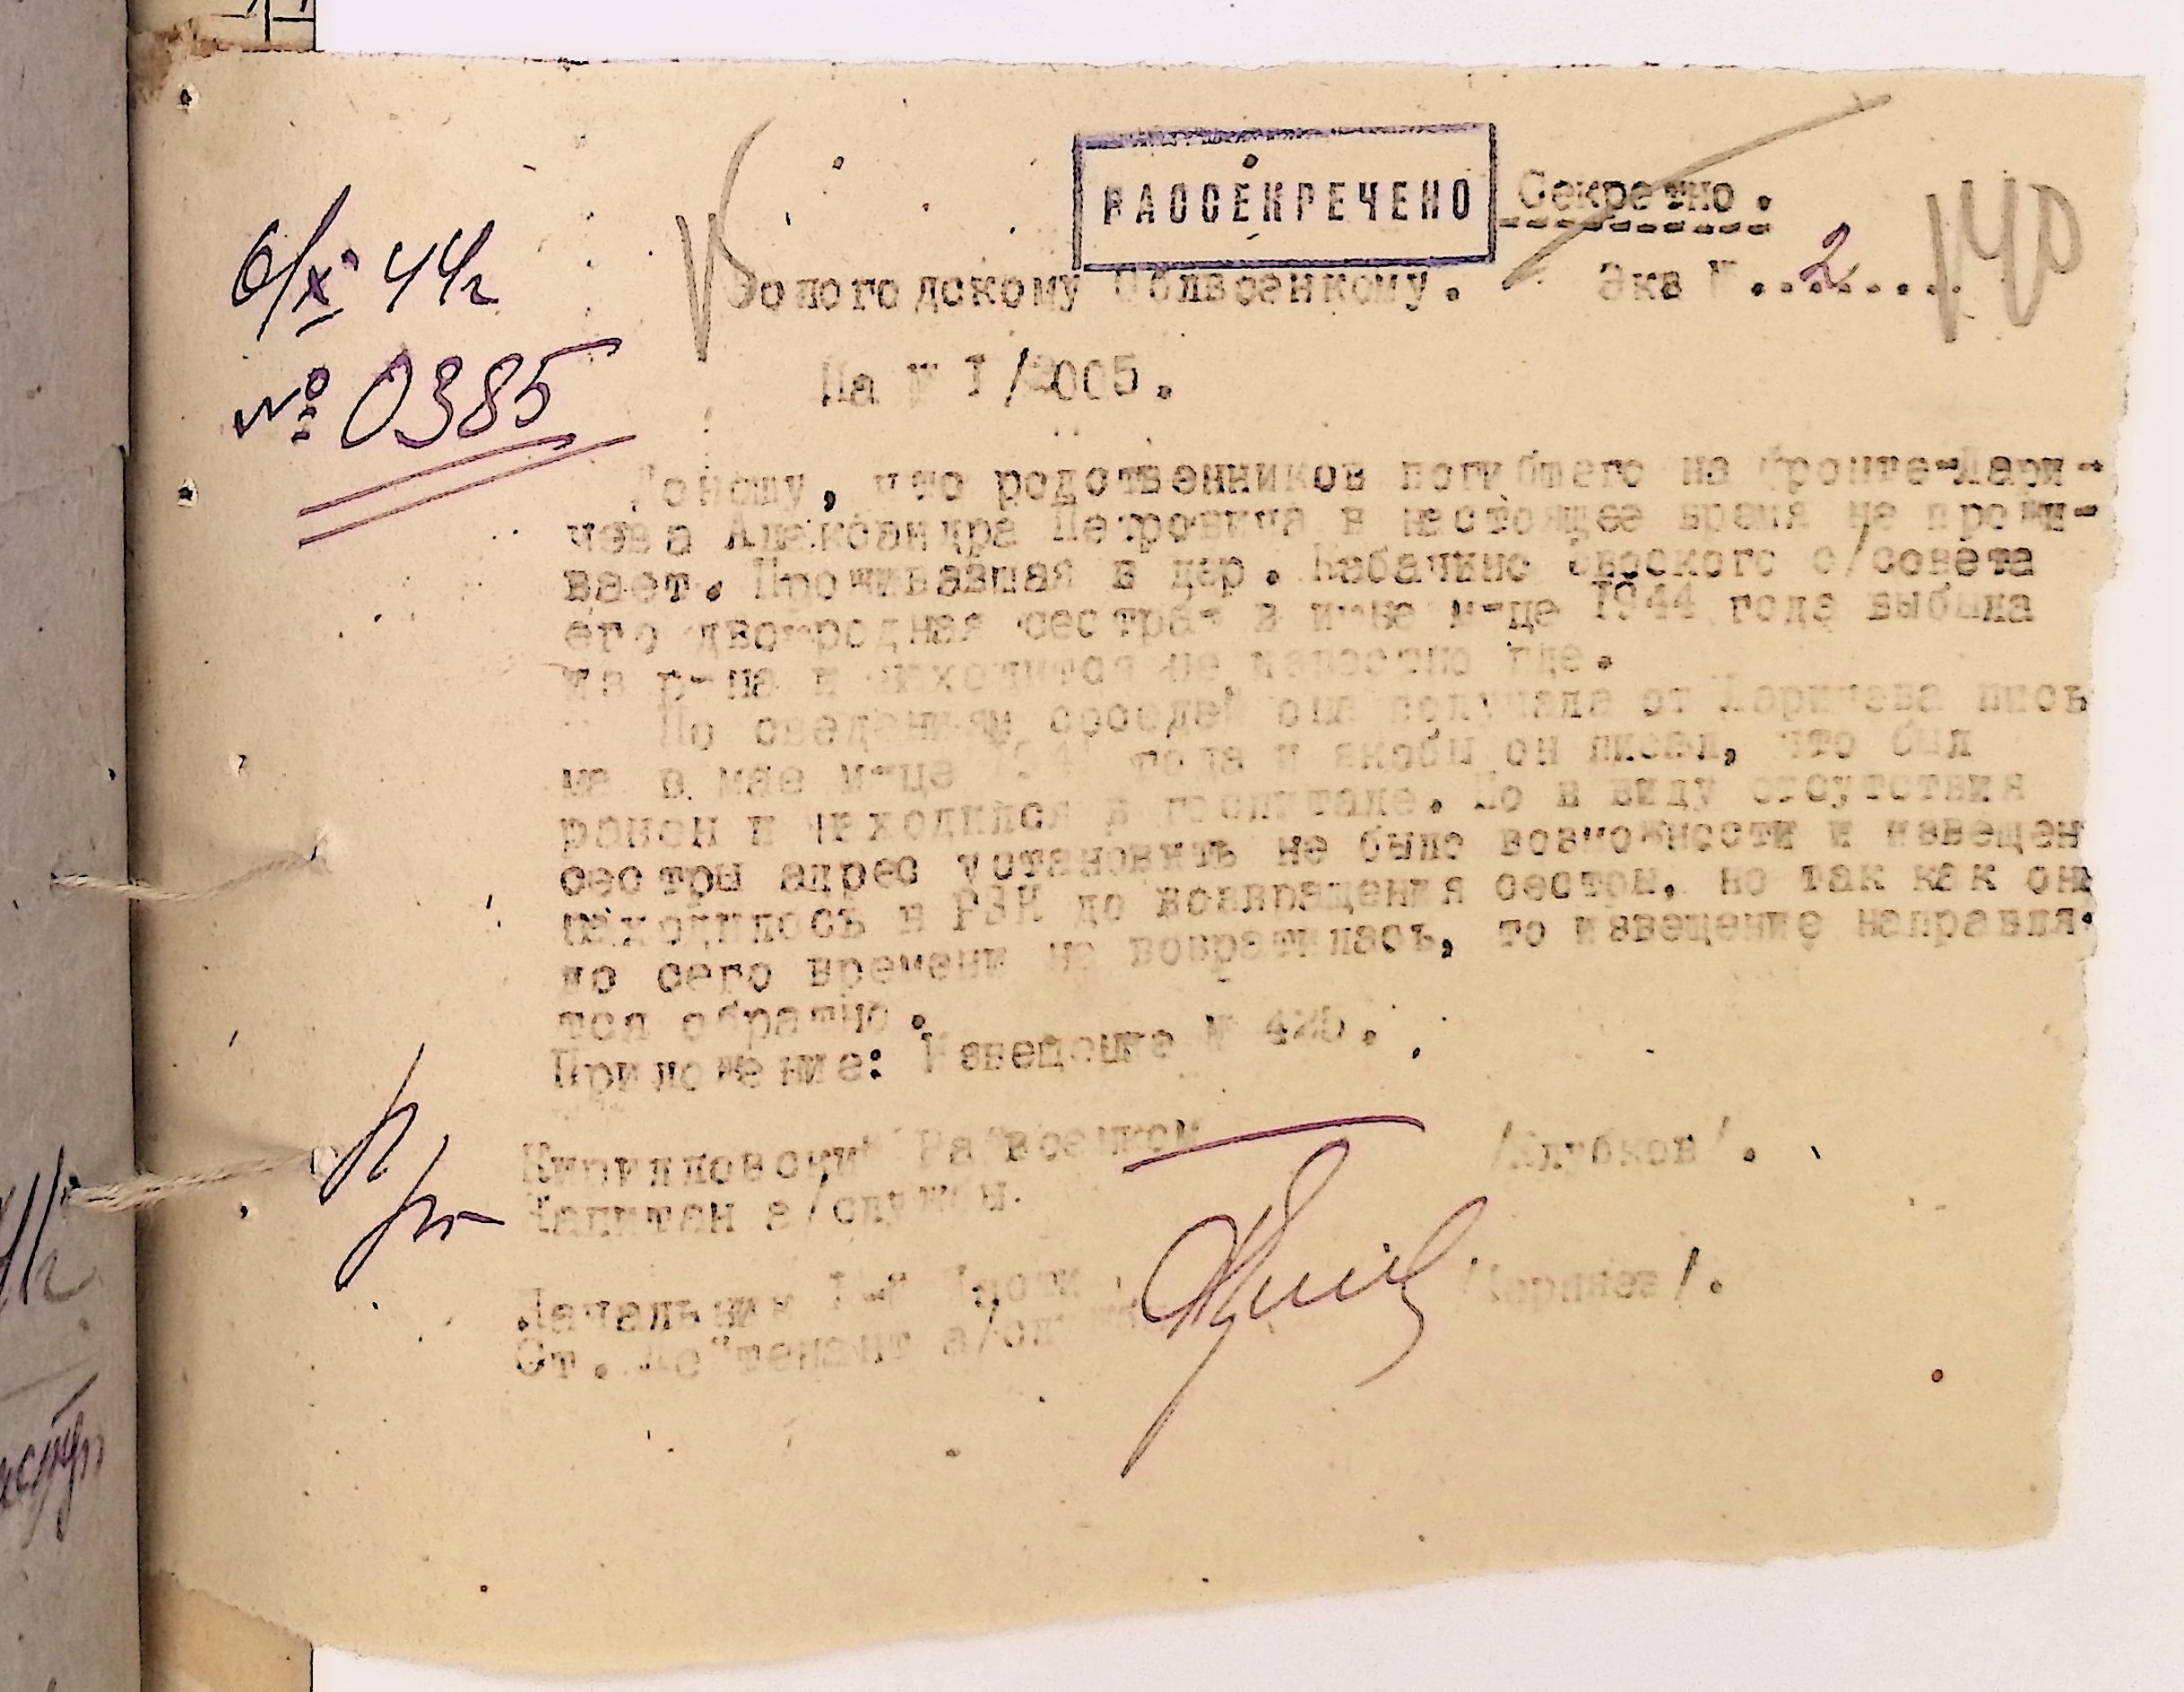 РАССЕКРЕЧЕНО
Секретно.
6/X 44г
№ 0385
Вологодскому Облвоенкому. Экз №...2.....
140
На № 1/2005.
Доношу, что родственников погибшего на фронте-Лари-
чева Александра Петровича в настоящее время не прожи-
вает. Проживавшая в дер. с/совета
его двоюродная сестра- в м-це 1944 года выбыла
из р-на и находится не известно где.
По сведениям соседей она получала от Ларичева пись
ма в мае м-це года и якобы он писал, что был
ранен и находился в госпитале. Но в виду отсутствия
сестры адрес установить не было возможности и извещен
находилось в РВК до возвращения сестры, но так как она
до сего времени не вовратилась, то извещение направля-
тся обратно.
Приложение: Извещение №
Кирилловский Райвоенком
Капитан а/службы. /Клубков/.
Начальник 1-й части
Ст. лейтенант а/сл